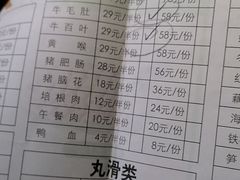 牛毛肚 29元/半份 58元/份
牛百叶 29元/半份 58元/份
黄喉 29元/半份 58元/份
猪肥肠 28元/半份 56元/份
猪脑花 18元/半份 36元/份
培根肉 12元/半份 24元/份
午餐肉 10元/半份 20元/份
鸭血 4元/半份 8元/份
丸滑类